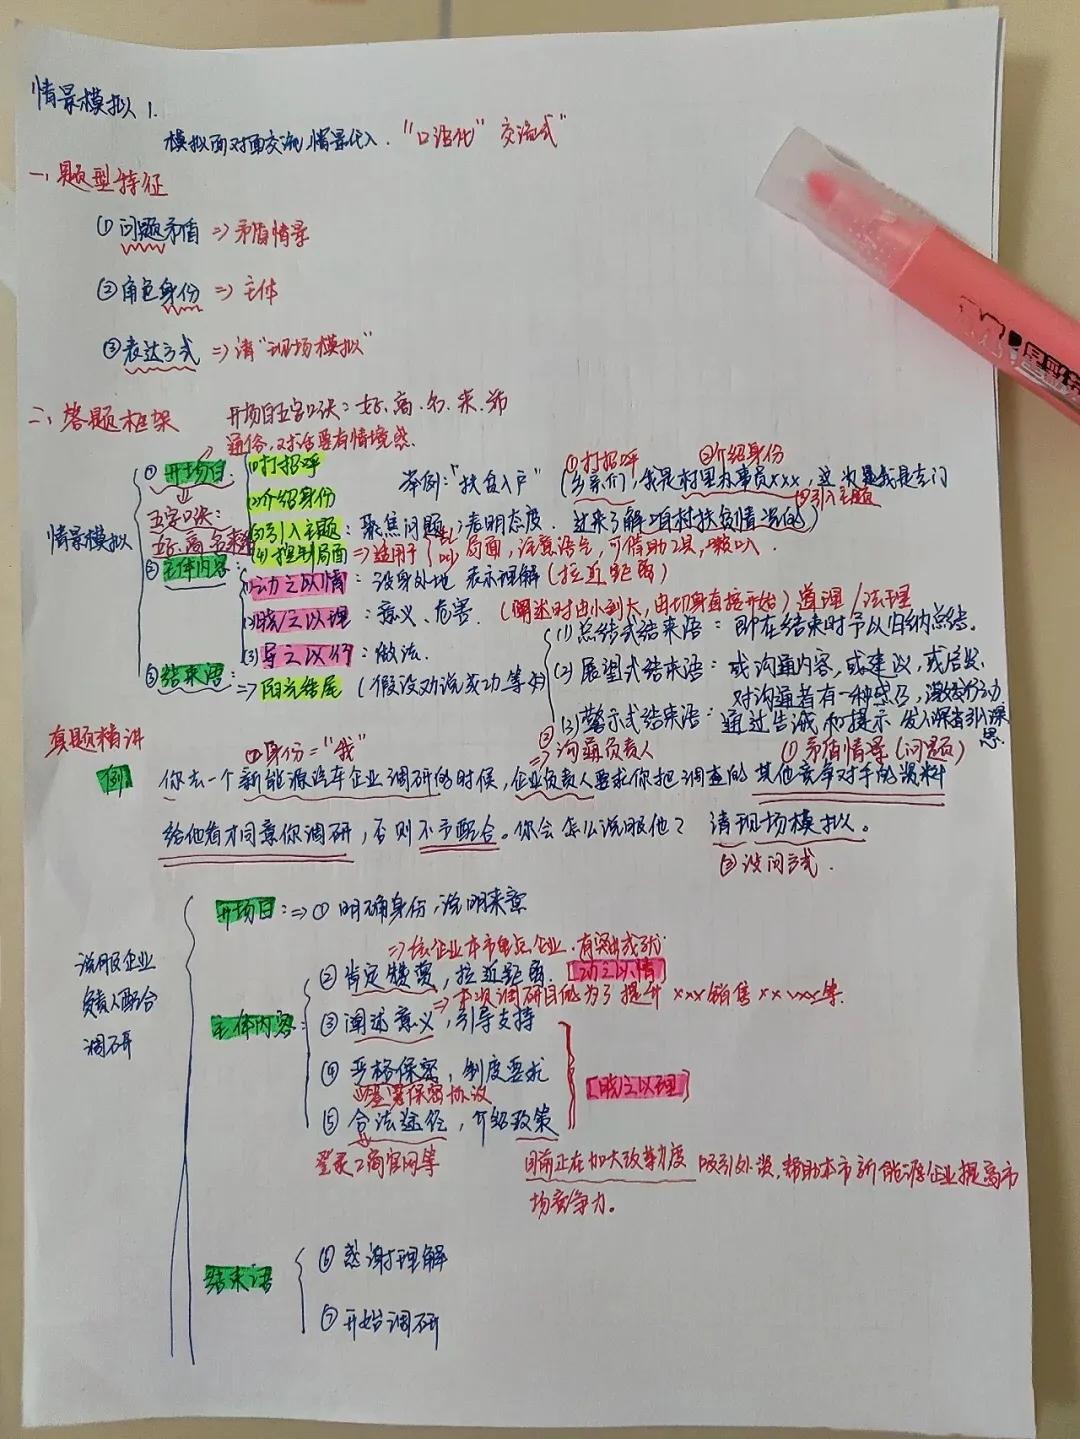 情景模拟 1.
模拟面对面交流,情景代入. "口语化" 交流式"
一、题型特征
①问题矛盾 => 矛盾情景
②角色身份 => 主体
③表达方式 => 请"现场模拟"
二、答题框架 开场白五字口诀:好.高.名.来.希
通俗,对话要有情境感.
情景模拟
①开场白:
五字口诀:
好.高.名来
(1)打招呼
(2)介绍身份
举例:"扶贫入户"
①打招呼 ②介绍身份
(乡亲们,我是村里办事员xxx,这次是我是专门
③引入主题
过来了解咱村扶贫情况的)
(3)引入主题:聚焦问题,表明态度.
(4)控制局面 => 适用于 局面,注意语气,可借助工具,
②主体内容:
(1)动之以情:设身处地 表示理解(拉近距离)
(2)晓之以理:意义、危害.(阐述时由小到大,由切身直接开始)道理/法理
(3)导之以行:做法.
③结束语:=> 阳光结尾(假设劝说成功等)
(1)总结式结束语:即在结束时予以归纳总结.
(2)展望式结束语:或沟通内容,或建议,或启发.
对沟通者有一种感召,激发行动
(3)警示式结束语:通过告诫和提示 发人深省引深思
真题精讲
①身份="我" ②=>沟通负责人 ①矛盾情景(问题)
例 你去一个新能源汽车企业调研的时候,企业负责人要求你把调查的其他竞争对手的资料
给他看才同意你调研,否则不予配合。你会怎么说服他?请现场模拟。
③设问方式.
说服企业
负责人配合
调研
开场白:=> ①明确身份,说明来意
=>该企业本市重点企业.有突出成就
主体内容:
②肯定赞赏,拉近距离.[动之以情]
=>本次调研目的为了提升xxx销售xxxxx等.
③阐述意义,引导支持
④严格保密,制度要求
签署保密协议
[晓之以理]
⑤合法途径,介绍政策
登录工商官网等
目前正在加大改革力度 吸引外资,帮助本市新能源企业提高市
场竞争力。
结束语
⑥感谢理解
⑦开始调研